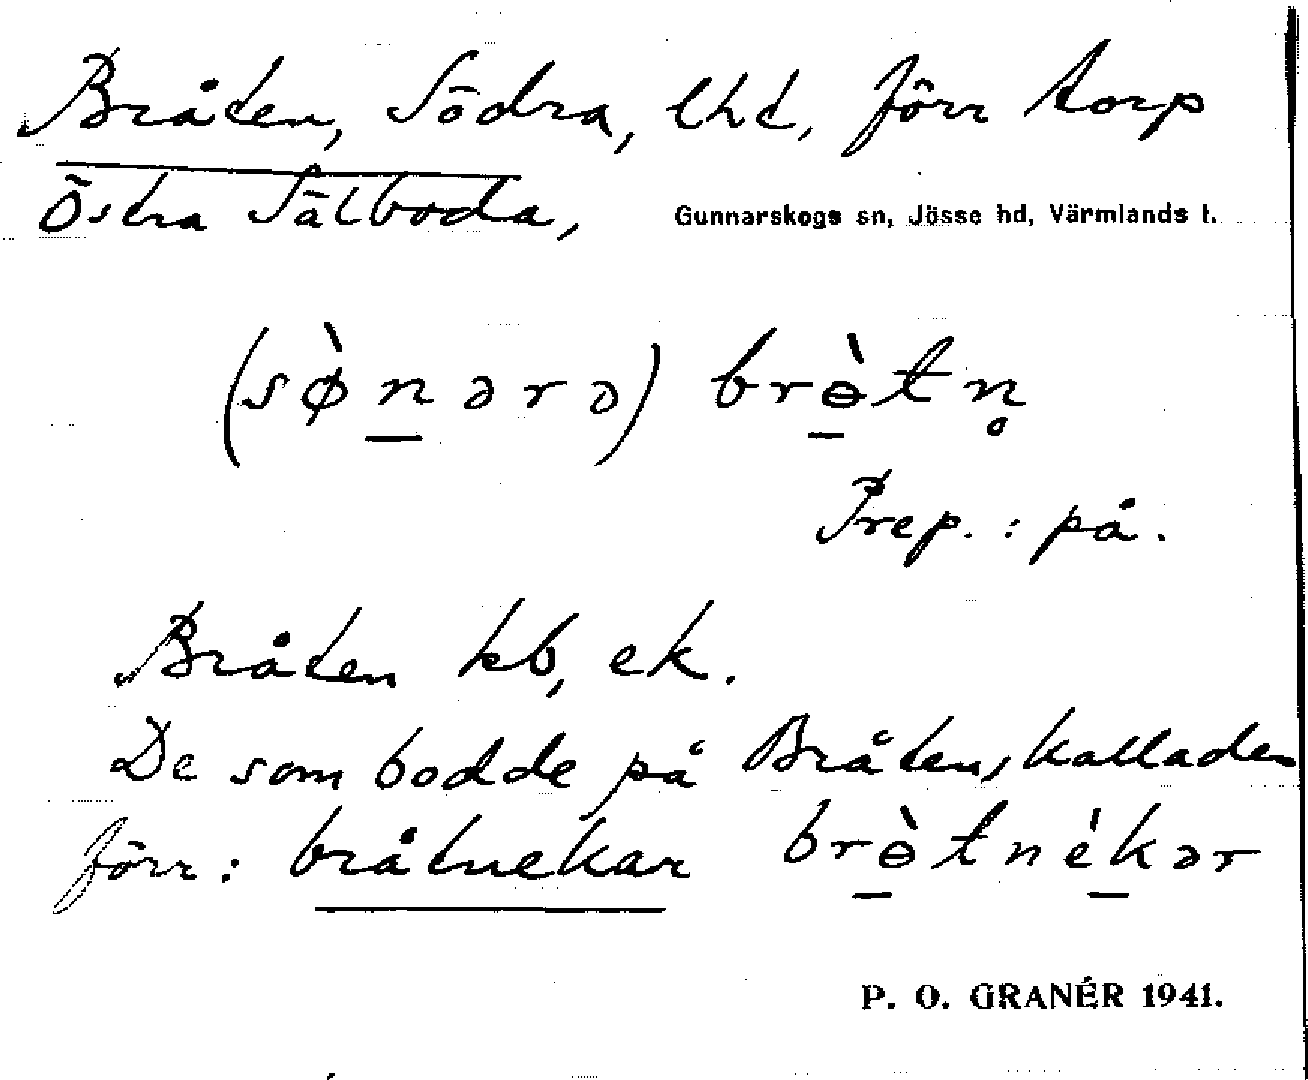 Bråten, Södra, lht, förr torp
Östra Sälboda, Gunnarskogs sn, Jösse hd, Värmlands l.
(sø̀n̲ərə) brɵ̲̀tn̥
Prep. : på.
Bråten kb, ek.
De som bodde på Bråten, kallades
förr: bråtnekar brɵ̲̀tné̲kər
P. O. GRANÉR 1941.